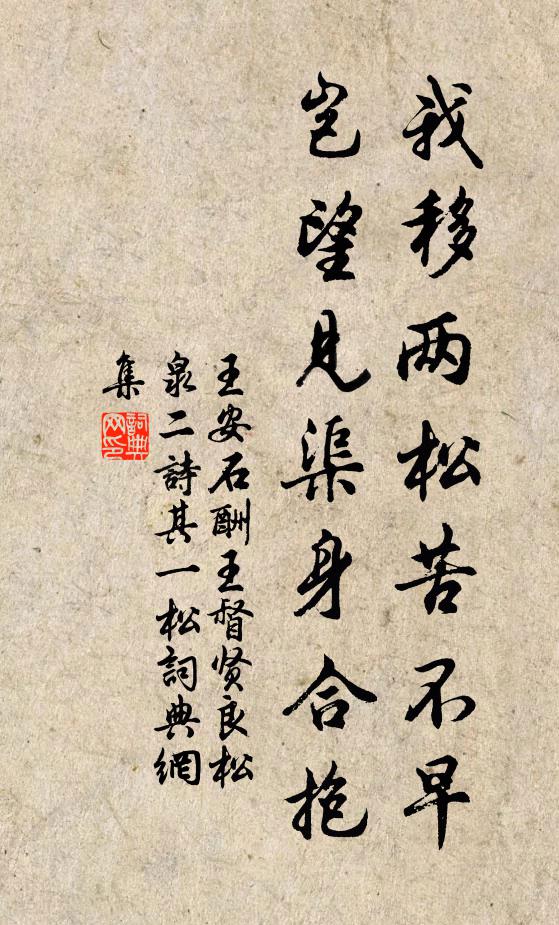 我移两松苦不早
岂望見渠身合抱
王安石酬王督贤良松
泉二詩其一松詞典網
集
詞典
网印